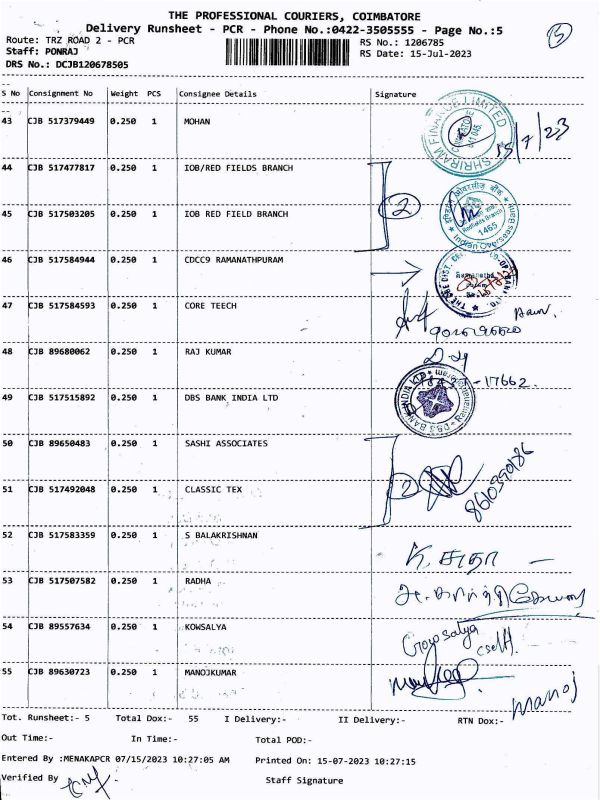 THE PROFESSIONAL COURIERS, COIMBATORE
Delivery Runsheet - PCR - Phone No.:0422-3505555 - Page No.:5
5
Route: TRZ ROAD 2 - PCR
RS No.: 1206785
Staff: PONRAJ
RS Date: 15-Jul-2023
DRS No.: DCJB120678505
S No Consignment No Weight PCS Consignee Details Signature
43 CJB 517379449 0.250 1 MOHAN
SHRIRAM FINANCE LIMITED
15/7/23
44 CJB 517477817 0.250 1 IOB/RED FIELDS BRANCH
2
45 CJB 517503205 0.250 1 IOB RED FIELD BRANCH
Redfields Branch
1465
Indian Overseas Bank
46 CJB 517584944 0.250 1 CDCC9 RAMANATHPURAM
47 CJB 517584593 0.250 1 CORE TEECH
48 CJB 89680062 0.250 1 RAJ KUMAR
17662.
49 CJB 517515892 0.250 1 DBS BANK INDIA LTD
DBS BANK INDIA LTD
50 CJB 89650483 0.250 1 SASHI ASSOCIATES
2
51 CJB 517492048 0.250 1 CLASSIC TEX
52 CJB 517583359 0.250 1 S BALAKRISHNAN
K. சுதா
53 CJB 517507582 0.250 1 RADHA
54 CJB 89557634 0.250 1 KOWSALYA
55 CJB 89630723 0.250 1 MANOJKUMAR
manoj
Tot. Runsheet:- 5 Total Dox:- 55 I Delivery:- II Delivery:- RTN Dox:-
Out Time:- In Time:- Total POD:-
Entered By :MENAKAPCR 07/15/2023 10:27:05 AM Printed On: 15-07-2023 10:27:15
Verified By Staff Signature